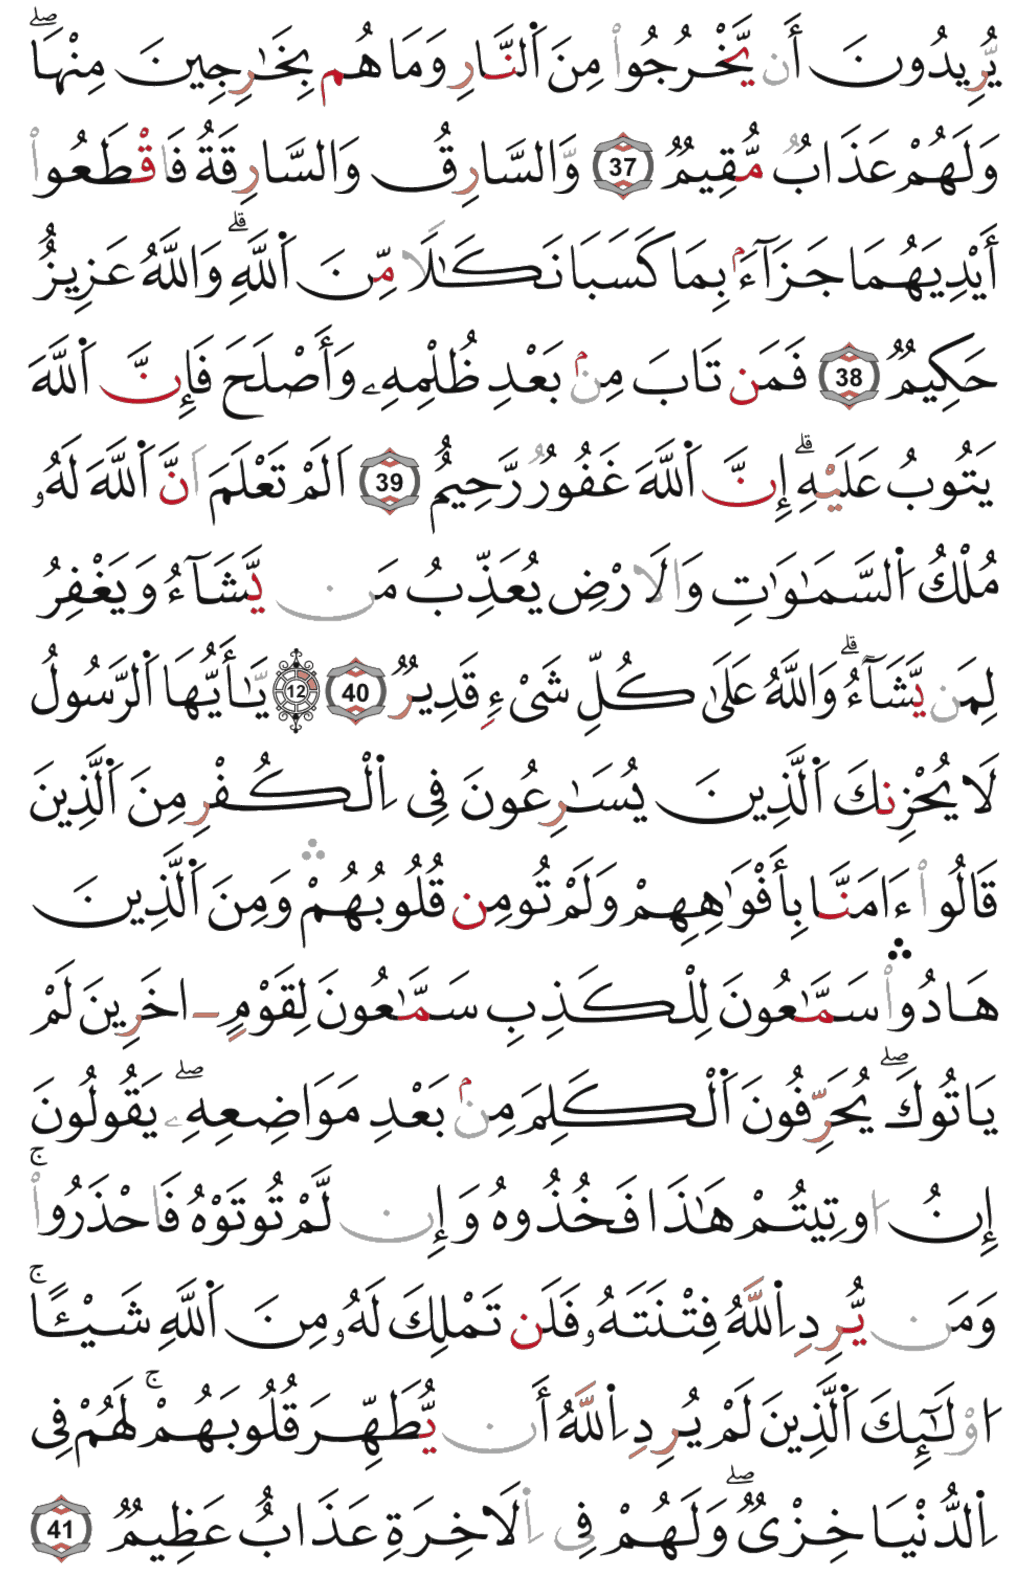 يُّرِيدُونَ أَن يَّخْرُجُواْ مِنَ اَ۬لنَّارِ وَمَا هُم بِخَٰرِجِينَ مِنْهَاۖ
وَلَهُمْ عَذَابٌ مُّقِيمٌ 37 وَّالسَّارِقُ وَالسَّارِقَةُ فَاقْطَعُواْ
أَيْدِيَهُمَا جَزَآءَۢ بِمَا كَسَبَا نَكَٰلًا مِّنَ اَ۬للَّهِۗ وَاللَّهُ عَزِيزٌ
حَكِيمٌ 38 فَمَن تَابَ مِنۢ بَعْدِ ظُلْمِهِۦ وَأَصْلَحَ فَإِنَّ اَ۬للَّهَ
يَتُوبُ عَلَيْهِۗ إِنَّ اَ۬للَّهَ غَفُورٌ رَّحِيمٌ 39 اَلَمْ تَعْلَمَ اَنَّ اَ۬للَّهَ لَهُۥ
مُلْكُ اُ۬لسَّمَٰوَٰتِ وَالَارْضِ يُعَذِّبُ مَن يَّشَآءُ وَيَغْفِرُ
لِمَن يَّشَآءُۗ وَاللَّهُ عَلَىٰ كُلِّ شَىْءٍ قَدِيرٌ 40 12 يَّٰأَيُّهَا اَ۬لرَّسُولُ
لَا يُحْزِنكَ اَ۬لَّذِينَ يُسَٰرِعُونَ فِى اِ۬لْكُفْرِ مِنَ اَ۬لَّذِينَ
قَالُواْ ءَامَنَّا بِأَفْوَٰهِهِمْ وَلَمْ تُومِن قُلُوبُهُمْۛ وَمِنَ اَ۬لَّذِينَ
هَادُواْۛ سَمَّٰعُونَ لِلْكَذِبِ سَمَّٰعُونَ لِقَوْمٍ ـ اخَرِينَ لَمْ
يَاتُوكَۖ يُحَرِّفُونَ اَ۬لْكَلِمَ مِنۢ بَعْدِ مَوَاضِعِهِۦۖ يَقُولُونَ
إِنُ اوتِيتُمْ هَٰذَا فَخُذُوهُ وَإِن لَّمْ تُوتَوْهُ فَاحْذَرُواْۚ
وَمَن يُّرِدِ اِ۬للَّهُ فِتْنَتَهُۥ فَلَن تَمْلِكَ لَهُۥ مِنَ اَ۬للَّهِ شَيْـًٔاۚ
اُوْلَٰٓئِكَ اَ۬لَّذِينَ لَمْ يُرِدِ اِ۬للَّهُ أَن يُّطَهِّرَ قُلُوبَهُمْۚ لَهُمْ فِى
اِ۬لدُّنْيَا خِزْىٌۖ وَلَهُمْ فِى اِ۬لَاخِرَةِ عَذَابٌ عَظِيمٌ 41